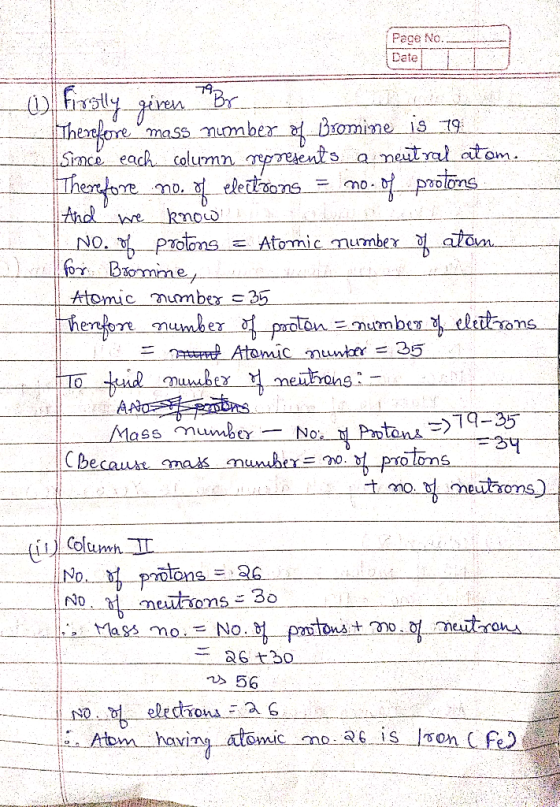 Page No.
Date
(i) Firstly given ⁷⁹Br
Therefore mass number of Bromine is 79
Since each column represents a neutral atom.
Therefore no. of electrons = no. of protons
And we know
NO. of protons = Atomic number of atom
for Bromine,
Atomic number = 35
Therefore number of proton = number of electrons
= Atomic number = 35
To find number of neutrons: -
Mass number - No. of Protons => 79-35
= 34
(Because mass number = no. of protons
+ no. of neutrons)
(ii) Column II
No. of protons = 26
No. of neutrons = 30
∴ Mass no. = No. of protons + no. of neutrons
= 26 +30
56
NO. of electrons = 26
∴ Atom having atomic no. 26 is Iron (Fe)